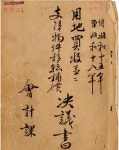 自昭和十五年
至昭和十八年
用地買收並ニ
支障物件移転補償
決議書
會計課